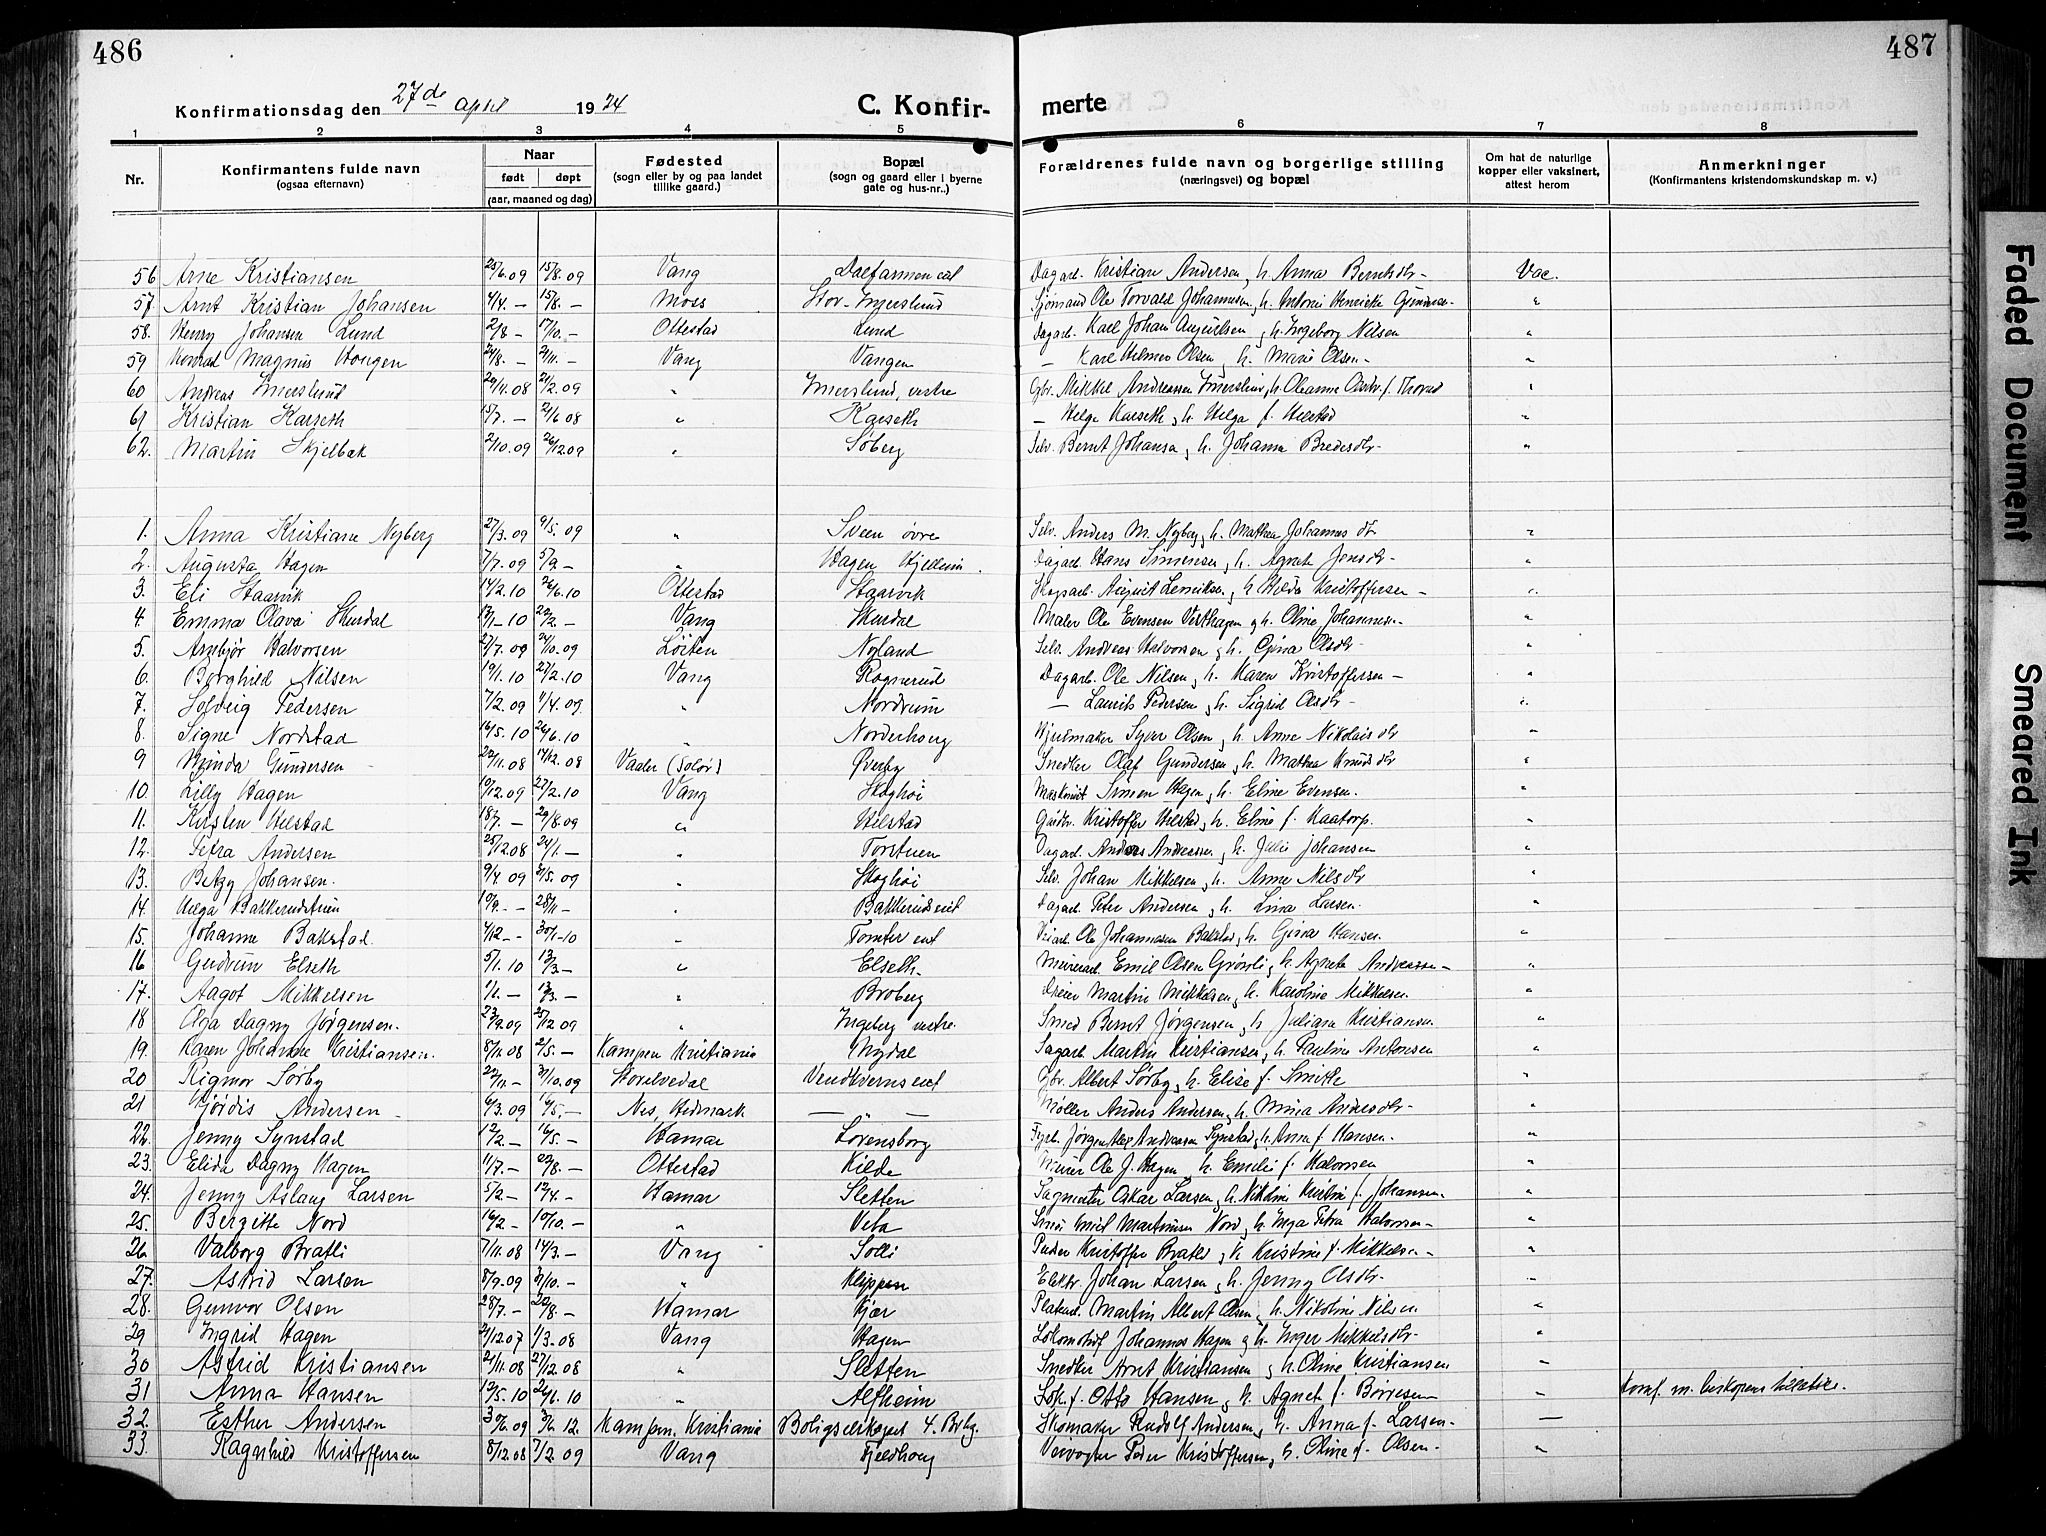 486
487
Konfirmationsdag den 27de april 1924
C. Konfirmerte
1 2 3 4 5 6 7 8
Nr.
Konfirmantens fulde navn (ogsaa efternavn)
Naar født døpt (aar, maaned og dag)
Fødested (sogn eller by og paa landet tillike gaard.)
Bopæl (sogn og gaard eller i byerne gate og hus-nr..)
Forældrenes fulde navn og borgerlige stilling (næringsvei) og bopæl
Om hat de naturlige kopper eller vaksinert, attest herom
Anmerkninger (Konfirmantens kristendomskundskap m. v.)
56 Arne Kristiansen 25/6.09 15/8.09 Vang Dalfarmen eiet Dagarb. Kristian Andersen, h. Anna Berntsdtr- Vac.
57. Arnt Kristian Johansen 4/4. - 15/8. - Moss Stor-Imerslund Sjömand Ole Torvald Johannesen, h. Antonie Henriette "
58. Henry Johansen Lund 2/8 - 17/10. - Ottestad Lund Dagarb. Karl Johan h. Ingeborg Nilsen "
59 Konrad Magnus Haugen 24/8. - 21/11. - Vang Vangen — Karl Hilmar Olsen, h. Marie Olsen- "
60 Andreas Imerslund 20/11.08 21/2.09 " Imerslund, vestre Gbr. Mikkel Andreassen Imerslund, h. Oleanne Olsdtr. f. "
61 Kristian Karseth 15/7. - 21/6 08 " Karseth — Helge Karseth, h. Helga f. Hilstad "
62. Martin Skjelbak 2/10.09 26/12.09 " Söberg Selv. Bernt Johansen, h. Johanne Bredesdtr- "
1. Anna Kristiane Nyberg 27/3.09 9/5.09 " Sveen øvre Selv. Anders M. Nyberg, h. Mathea Johannesdtr "
2. Augusta Hagen 7/7.09 5/9. - " Hagen Hjellum. Dagarb. Hans Simensen, h. Agnete Jensdtr- "
3. Eli Staarvik 14/2.10 26/6.10 Ottestad Staarvik Skogsarb. August h Hilda Kristoffersen - "
4. Emma Olava Skurdal 13/1-10 22/2. - Vang Skurdal Maler Ole Evensen Vesthagen og h. Oline Johannesen- "
5. Arnbjör Halvorsen 27/7.09 24/10.09 Löiten Nyland Selv. Andreas Halvorsen og h. Gina Olsdtr- "
6. Borghild Nilsen 19/1.10 27/2.10 Vang Rognerud Dagarb. Ole Nilsen, h. Maren Kristoffersen - "
7. Solveig Pedersen 7/2.09 11/4.09 " Nordrum — Laurits Pedersen, h. Sigrid Olsdtr- "
8. Signe Nordstad 16/5.10 26/6.10 " Norderhaug Hjulmaker Syver Olsen, h. Anne Nikolaisdtr "
9 Minda Gundersen 20/11.08 14/12.08 Vaaler (Solör) Øverby Snedker Olaf Gundersen, h. Mathea Knudsdtr "
10. Lilly Hagen 10/12.09 27/2.10 Vang Skoghöi Simen Hagen, h. Eline Evensen. "
11. Kirsten Hilstad 18/7. - 29/8.09 " Hilstad Gaardbr. Kristoffer Hilstad, h. Eline f. Kaatorp. "
12. Petra Andersen 25/12.08 24/1. - " Torstuen Dagarb. Anders Andreassen, h. Julie Johansen "
13. Betzy Johansen. 9/4.09 31/5.09 " Skoghöi Selv. Johan Mikkelsen, h. Anne Nilsdtr "
14. Helga Bakkerudstuen 10/9. - 28/11 - " Bakkerudseiet Dagarb. Peter Andersen, h. Lina Larsen. "
15. Johanne Bakstad. 4/12 - 30/1-10 " Tomter eiet Veiarb. Ole Johannesen Bakstad, h. Gina Hansen. "
16 Gudrun Elseth 5/1.10 13/3 - " Elseth. Murerarb. Emil Olsen Grönli, h. Agnete Andreassen - "
17. Aagot Mikkelsen 1/1. - 13/3. - " Broberg Martin Mikkelsen, h. Karoline Mikkelsen. "
18 Olga Dagny Jörgensen. 23/9.09 25/12.09 " Ingeberg vestre. Smed Bernt Jörgensen, h Juliane Kristiansen. "
19. Karen Johanne Kristiansen. 8/11.08 2/5. - Kampen Kristiania Nydal Sagarb. Martin Kristiansen, h. Pauline Antonsen "
20 Rigmor Sörby 22/11. - 31/10.09 Storelvedal Vendkvernseiet Gbr. Albert Sörby, h. Elise f. Smitte "
21 Hjördis Andersen - 6/3.09 16/5. - Nes, Hedmark — — Møller Anders Andersen, h. Mina Andersdtr- "
22. Jenny Synstad 12/2. - 16/5. - Hamar Lörensborg Jörgen Alex Andreassen Synstad, h. Anna f. Hansen. "
23. Elida Dagny Hagen 11/7. - 22/8. - Ottestad Kilde Murer Ole J. Hagen, h. Emilie f. Halvorsen "
24. Jenny Aslaug Larsen 5/2 - 12/4. - Hamar Sletten Sagmester Oskar Larsen, h. Nikoline Kristine f. Johansen. "
25. Bergitte Nord 16/2 - 10/10. - " Vela Smed Emil Martinsen Nord, h. Inga Petra Halvorsen- "
26 Valborg Bratli 7/11.08 14/3. - Vang Solli Kristoffer Bratli, h Kristine f. Mikkelsen- "
27. Astrid Larsen 8/9.09 31/10. - " Klippen Elektr. Johan Larsen, h. Jenny Olsdtr- "
28. Gunvor Olsen 28/7. - 22/8. - Hamar Kjær Martin Albert Olsen, h. Nikoline Nilsen "
29 Ingrid Hagen 21/12.07 1/3.08 Vang Hagen Lokomotivf. Johannes Hagen og h. Inger Mikkelsdtr- "
30 Astrid Kristiansen 21/11.08 27/12.08 " Sletten Snedker Arnt Kristiansen og h. Oline Kristiansen —
31 Anna Hansen 12/5.10 26/6.10 " Alfheim Lok.f. Otto Hansen, h. Agnete f. Börresen — Konf. m. biskopens tilladelse.
32. Esther Andersen 30/6.09 3/6.12. Kampen, Kristiania Boligselskapet 4. Byby. Skomaker Rudolf Andersen, h. Anna f. Larsen- —
33. Ragnhild Kristoffersen 8/12.08 7/2.09 Vang Fjeldhaug Veivogter Peder Kristoffersen, h. Oline f. Olsen- "
Faded Document
Smeared Ink